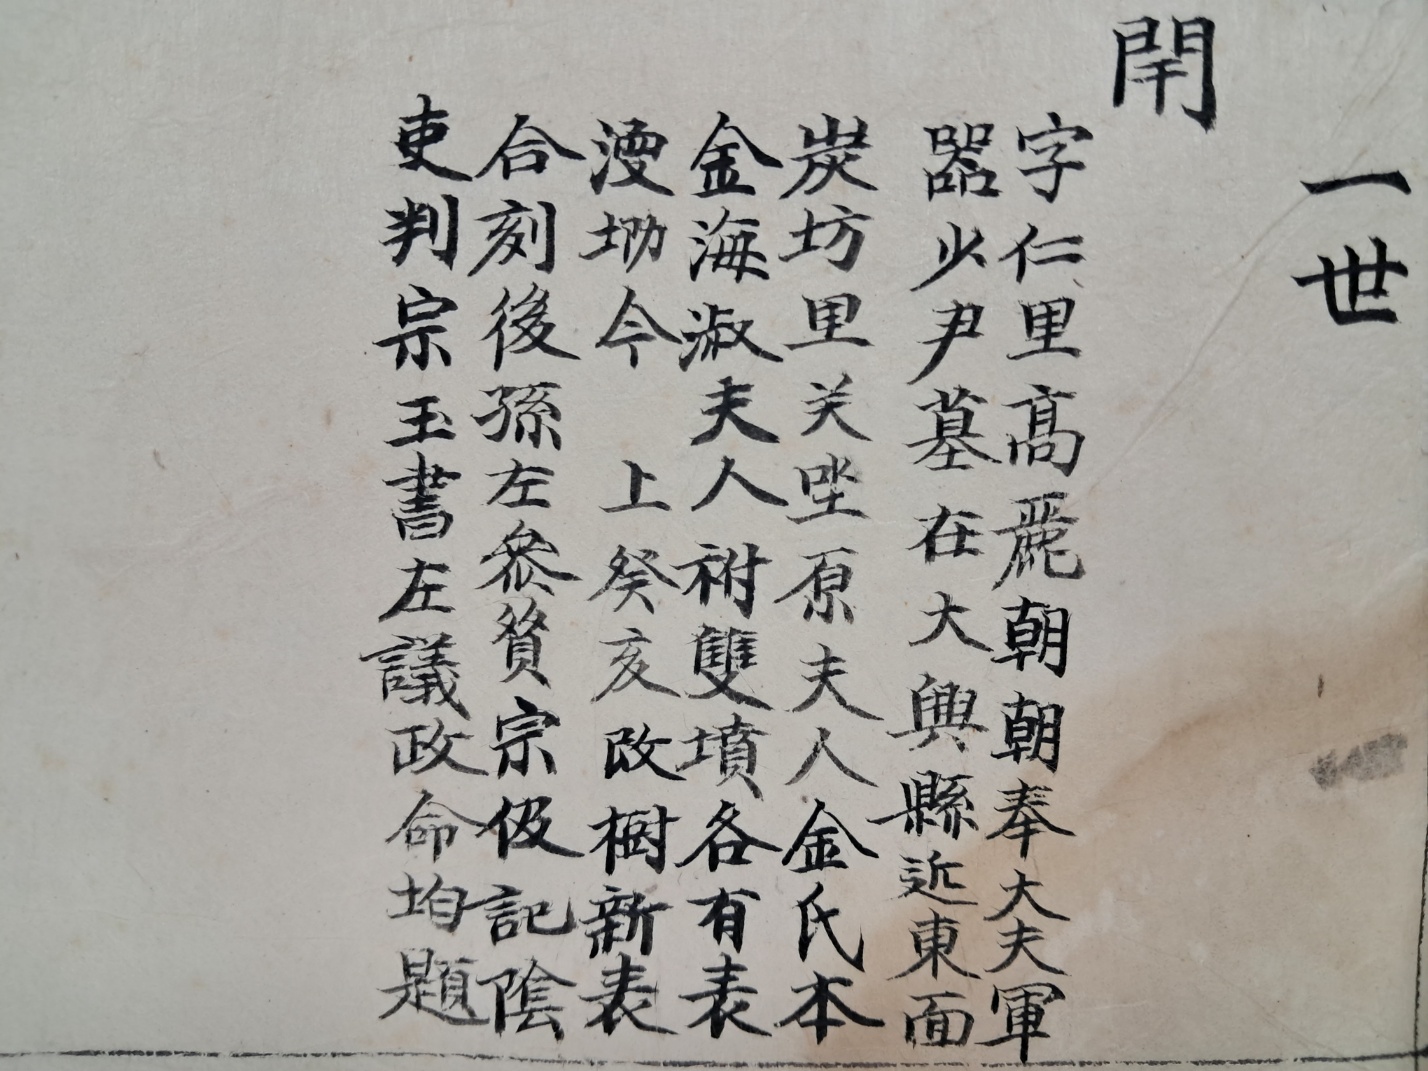 一世
閈
字仁里高麗朝朝奉大夫軍
器少尹墓在大興縣近東面
炭坊里关坐原夫人金氏本
金海淑夫人祔雙墳各有表
漫泐今 上癸亥改樹新表
合刻後孫左參贊宗伋記陰
吏判宗玉書左議政命均題